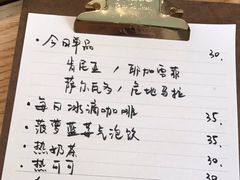 ·今日单品 30.
肯尼亚, 耶加雪菲
萨尔瓦多, 危地马拉
·每日冰滴咖啡 35.
·菠萝蓝莓气泡饮 35.
·热奶茶 30.
·热可可 30.